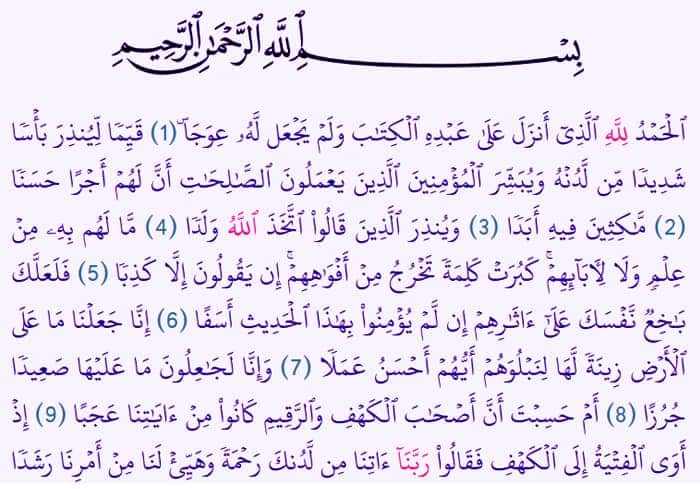 بِسْمِ ٱللَّهِ ٱلرَّحْمَٰنِ ٱلرَّحِيمِ
ٱلْحَمْدُ لِلَّهِ ٱلَّذِىٓ أَنزَلَ عَلَىٰ عَبْدِهِ ٱلْكِتَٰبَ وَلَمْ يَجْعَل لَّهُۥ عِوَجَاۜ (1) قَيِّمًا لِّيُنذِرَ بَأْسًا
شَدِيدًا مِّن لَّدُنْهُ وَيُبَشِّرَ ٱلْمُؤْمِنِينَ ٱلَّذِينَ يَعْمَلُونَ ٱلصَّٰلِحَٰتِ أَنَّ لَهُمْ أَجْرًا حَسَنًا
(2) مَّٰكِثِينَ فِيهِ أَبَدًا (3) وَيُنذِرَ ٱلَّذِينَ قَالُوا۟ ٱتَّخَذَ ٱللَّهُ وَلَدًا (4) مَّا لَهُم بِهِۦ مِنْ
عِلْمٍ وَلَا لِءَابَآئِهِمْ ۚ كَبُرَتْ كَلِمَةً تَخْرُجُ مِنْ أَفْوَٰهِهِمْ ۚ إِن يَقُولُونَ إِلَّا كَذِبًا (5) فَلَعَلَّكَ
بَٰخِعٌ نَّفْسَكَ عَلَىٰٓ ءَاثَٰرِهِمْ إِن لَّمْ يُؤْمِنُوا۟ بِهَٰذَا ٱلْحَدِيثِ أَسَفًا (6) إِنَّا جَعَلْنَا مَا عَلَى
ٱلْأَرْضِ زِينَةً لَّهَا لِنَبْلُوَهُمْ أَيُّهُمْ أَحْسَنُ عَمَلًا (7) وَإِنَّا لَجَٰعِلُونَ مَا عَلَيْهَا صَعِيدًا
جُرُزًا (8) أَمْ حَسِبْتَ أَنَّ أَصْحَٰبَ ٱلْكَهْفِ وَٱلرَّقِيمِ كَانُوا۟ مِنْ ءَايَٰتِنَا عَجَبًا (9) إِذْ
أَوَى ٱلْفِتْيَةُ إِلَى ٱلْكَهْفِ فَقَالُوا۟ رَبَّنَآ ءَاتِنَا مِن لَّدُنكَ رَحْمَةً وَهَيِّئْ لَنَا مِنْ أَمْرِنَا رَشَدًا